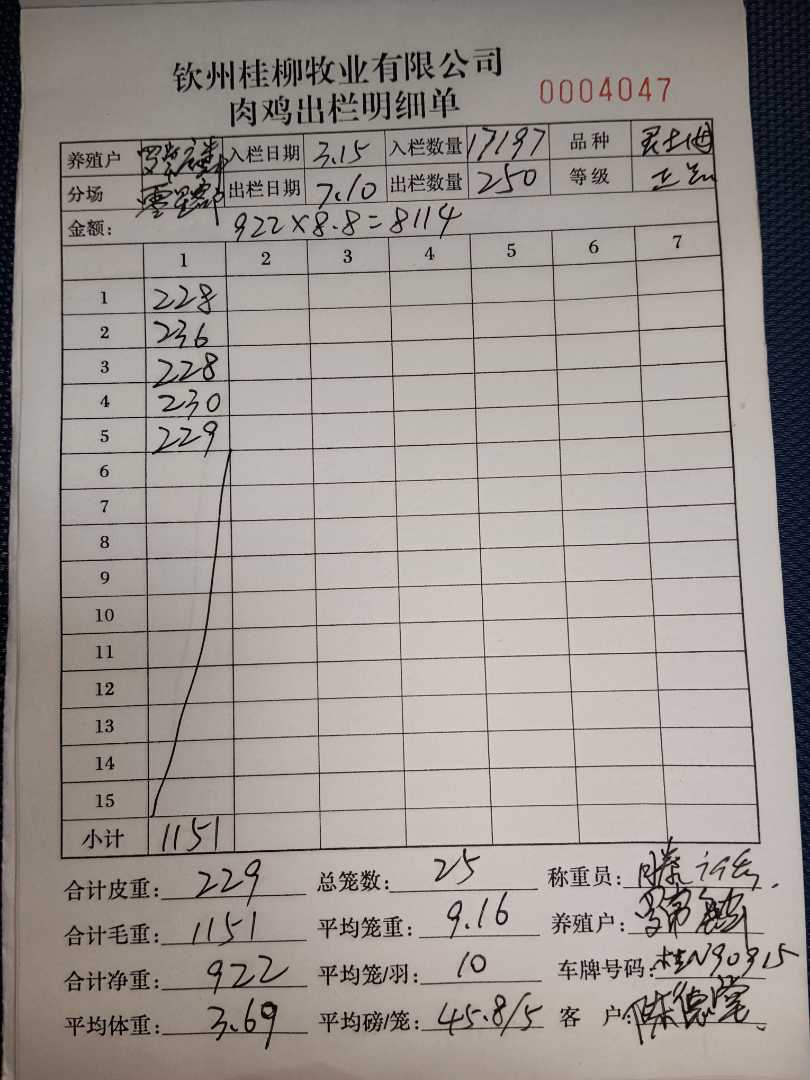 钦州桂柳牧业有限公司
肉鸡出栏明细单 0004047
养殖户 入栏日期 3.15 入栏数量 17197 品种 灵土
分场 出栏日期 7.10 出栏数量 250 等级 正
金额: 922×8.8=8114
1 2 3 4 5 6 7
1 228
2 236
3 228
4 230
5 229
6
7
8
9
10
11
12
13
14
15
小计 1151
合计皮重: 229 总笼数: 25 称重员: 滕
合计毛重: 1151 平均笼重: 9.16 养殖户:
合计净重: 922 平均笼/羽: 10 车牌号码: 桂N90915
平均体重: 3.69 平均磅/笼: 45.8/5 客户: 陈德堂